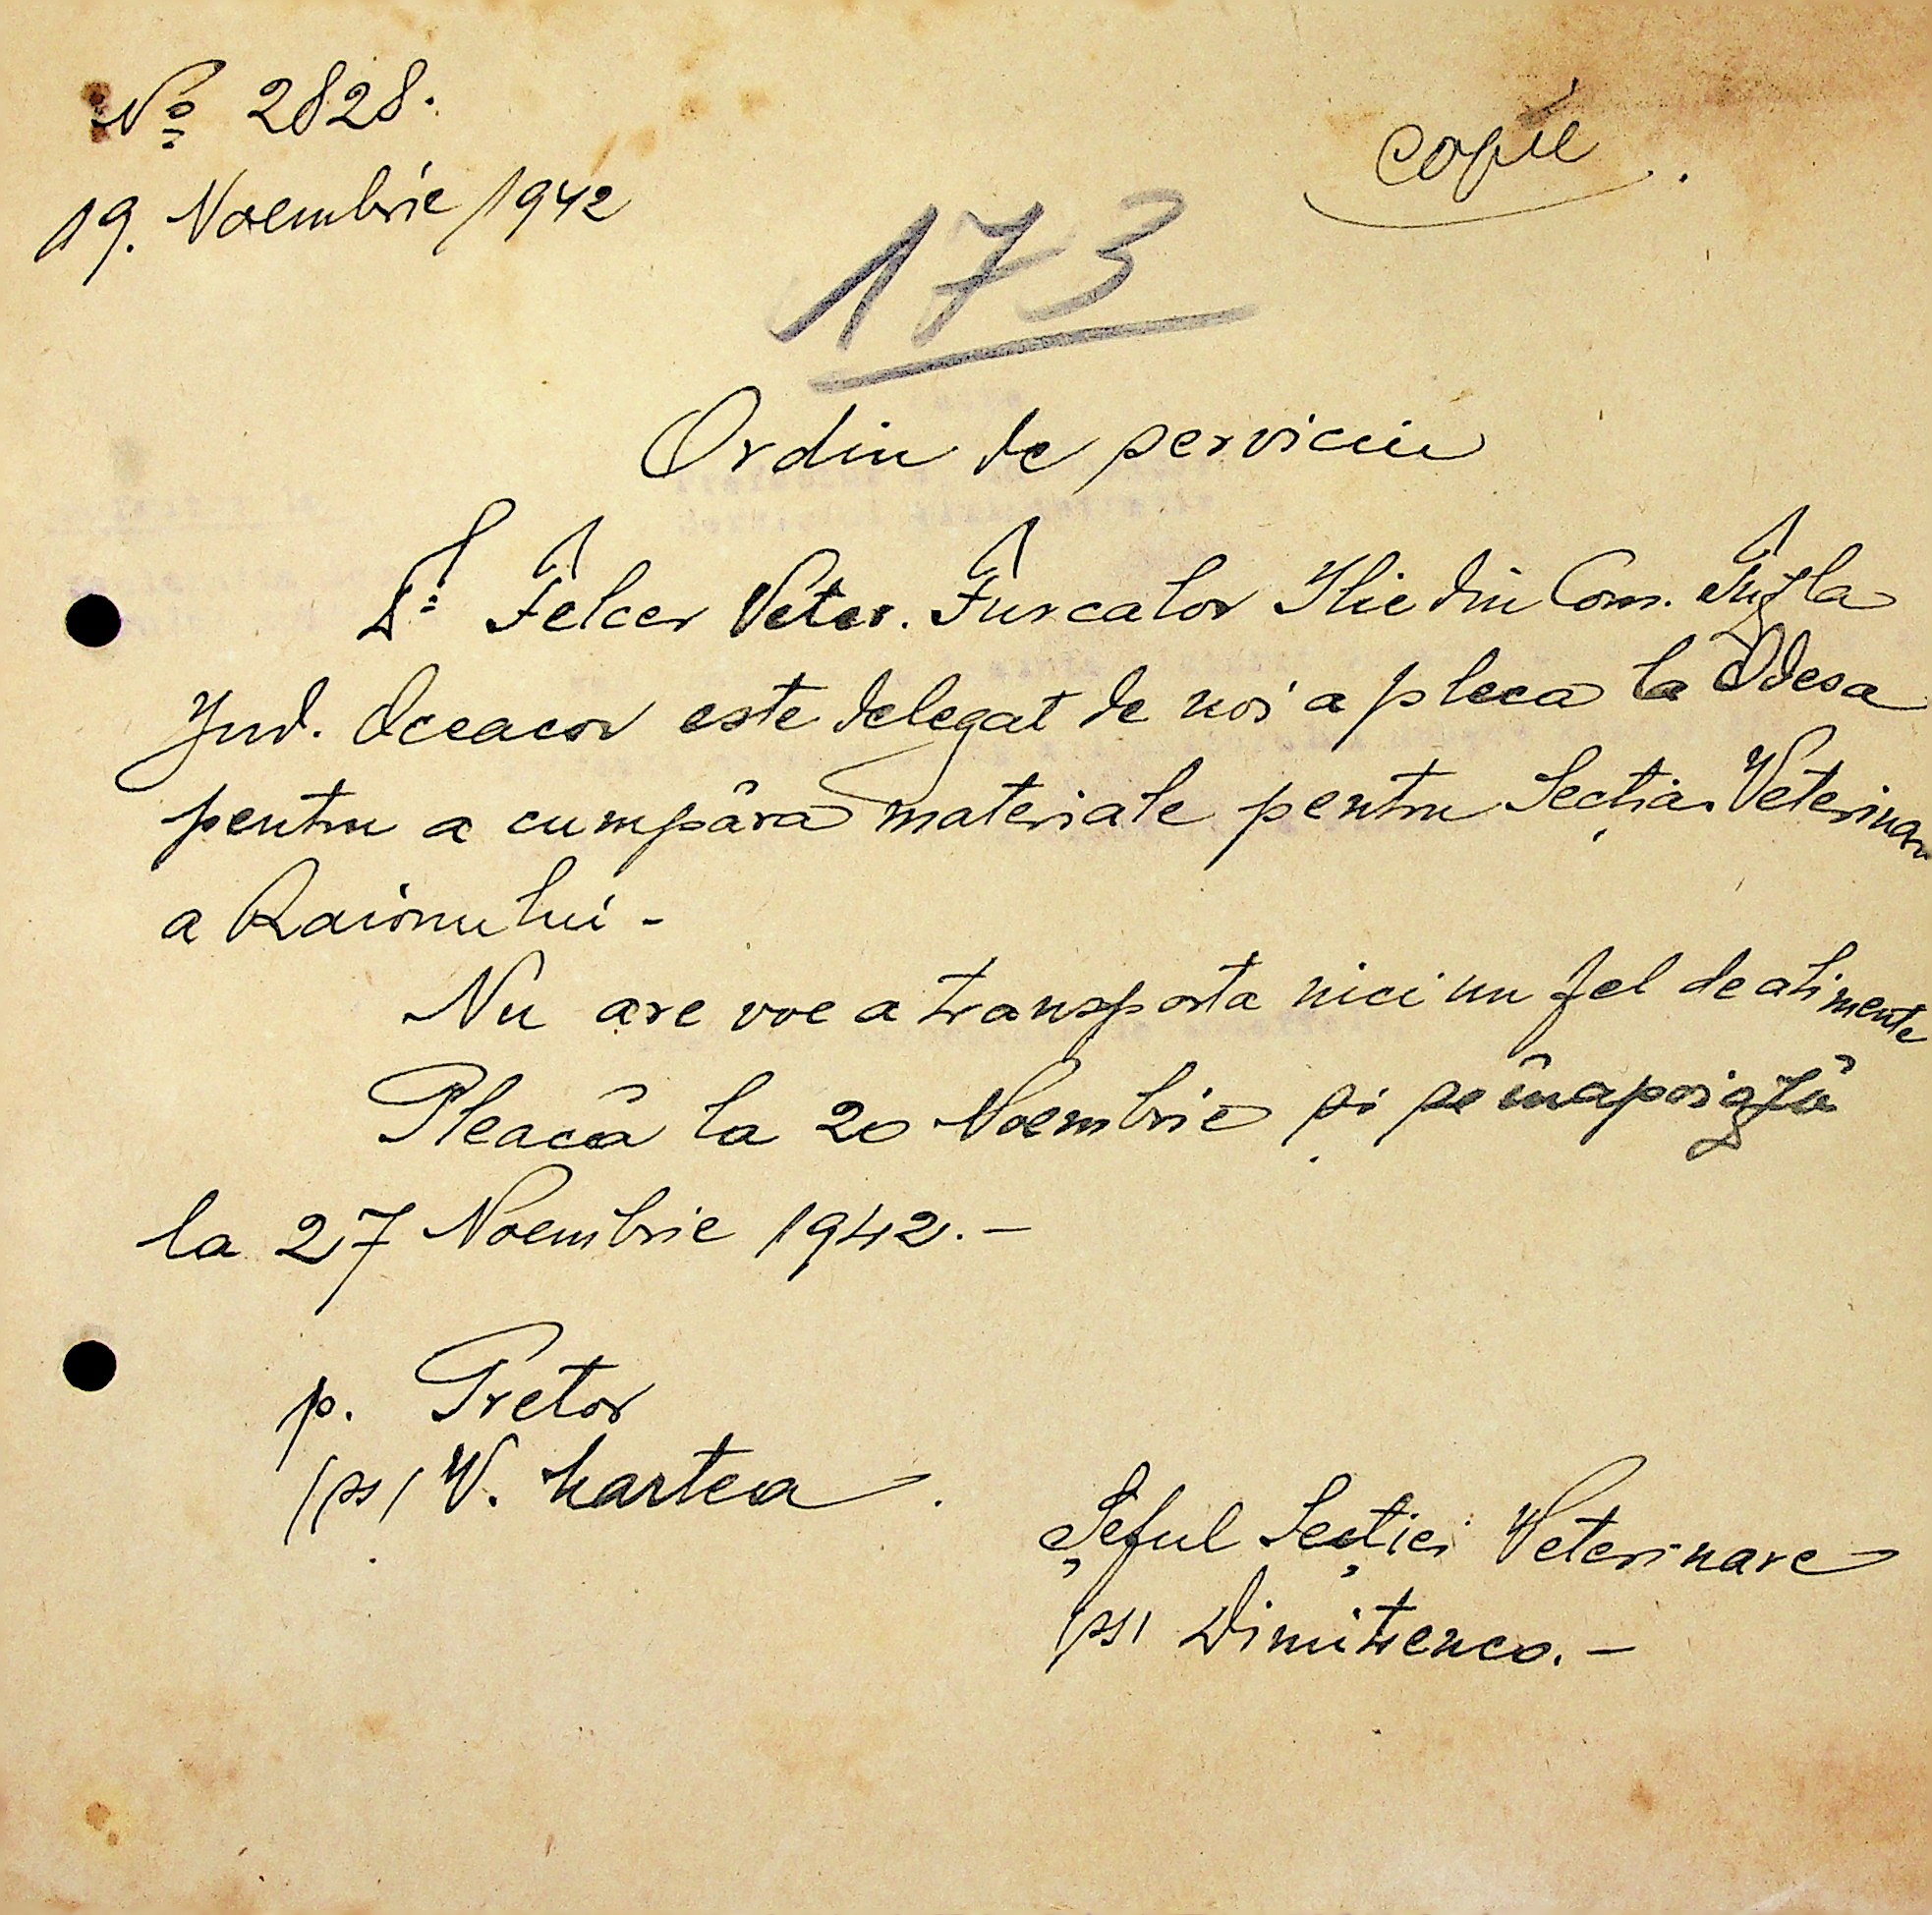 No 2828.
copie.
19. Noembrie 1942
173
Ordin de serviciu
Dl Felcer Veter. Furcalov Ilie din Com.
Jud. Oceacov este delegat de noi a pleca la Odesa
pentru a cumpăra materiale pentru Secția Veterinar
a Raionului -
Nu are voe a transporta nici un fel de alimente
Pleacă la 20 Noembrie și se înapoiază
la 27 Noembrie 1942.-
p. Pretor
/ss/ V. hartea.
Șeful Secției Veterinare
/ss/ Dimitrenco.-